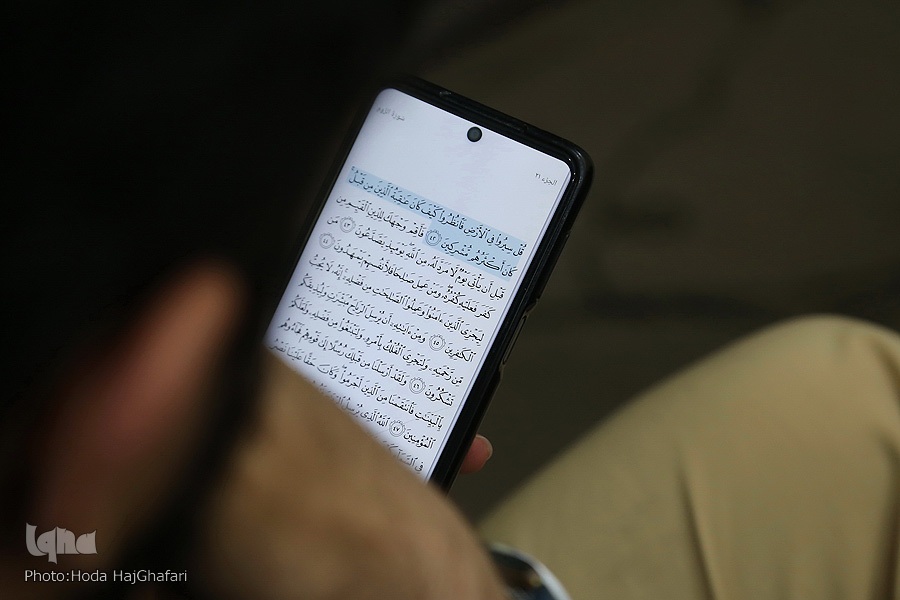 سورة الروم
الجزء ٢١
قُلْ سِيرُوا۟ فِى ٱلْأَرْضِ فَٱنظُرُوا۟ كَيْفَ كَانَ عَـٰقِبَةُ ٱلَّذِينَ مِن قَبْلُ ۚ
كَانَ أَكْثَرُهُم مُّشْرِكِينَ ٤٢ فَأَقِمْ وَجْهَكَ لِلدِّينِ ٱلْقَيِّمِ مِن
قَبْلِ أَن يَأْتِىَ يَوْمٌ لَّا مَرَدَّ لَهُۥ مِنَ ٱللَّهِ ۖ يَوْمَئِذٍ يَصَّدَّعُونَ ٤٣ مَن
كَفَرَ فَعَلَيْهِ كُفْرُهُۥ ۖ وَمَنْ عَمِلَ صَـٰلِحًا فَلِأَنفُسِهِمْ يَمْهَدُونَ ٤٤
لِيَجْزِىَ ٱلَّذِينَ ءَامَنُوا۟ وَعَمِلُوا۟ ٱلصَّـٰلِحَـٰتِ مِن فَضْلِهِۦٓ ۚ إِنَّهُۥ لَا يُحِبُّ
ٱلْكَـٰفِرِينَ ٤٥ وَمِنْ ءَايَـٰتِهِۦٓ أَن يُرْسِلَ ٱلرِّيَاحَ مُبَشِّرَٰتٍ وَلِيُذِيقَكُم
مِّن رَّحْمَتِهِۦ وَلِتَجْرِىَ ٱلْفُلْكُ بِأَمْرِهِۦ وَلِتَبْتَغُوا۟ مِن فَضْلِهِۦ وَلَعَلَّكُمْ
تَشْكُرُونَ ٤٦ وَلَقَدْ أَرْسَلْنَا مِن قَبْلِكَ رُسُلًا إِلَىٰ قَوْمِهِمْ فَجَآءُوهُم
بِٱلْبَيِّنَـٰتِ فَٱنتَقَمْنَا مِنَ ٱلَّذِينَ أَجْرَمُوا۟ ۖ وَكَانَ حَقًّا عَلَيْنَا نَصْرُ
ٱلْمُؤْمِنِينَ ٤٧ ٱللَّهُ ٱلَّذِى يُرْسِلُ
فِى ٱلسَّمَآءِ
Iqna
Photo:Hoda HajGhafari